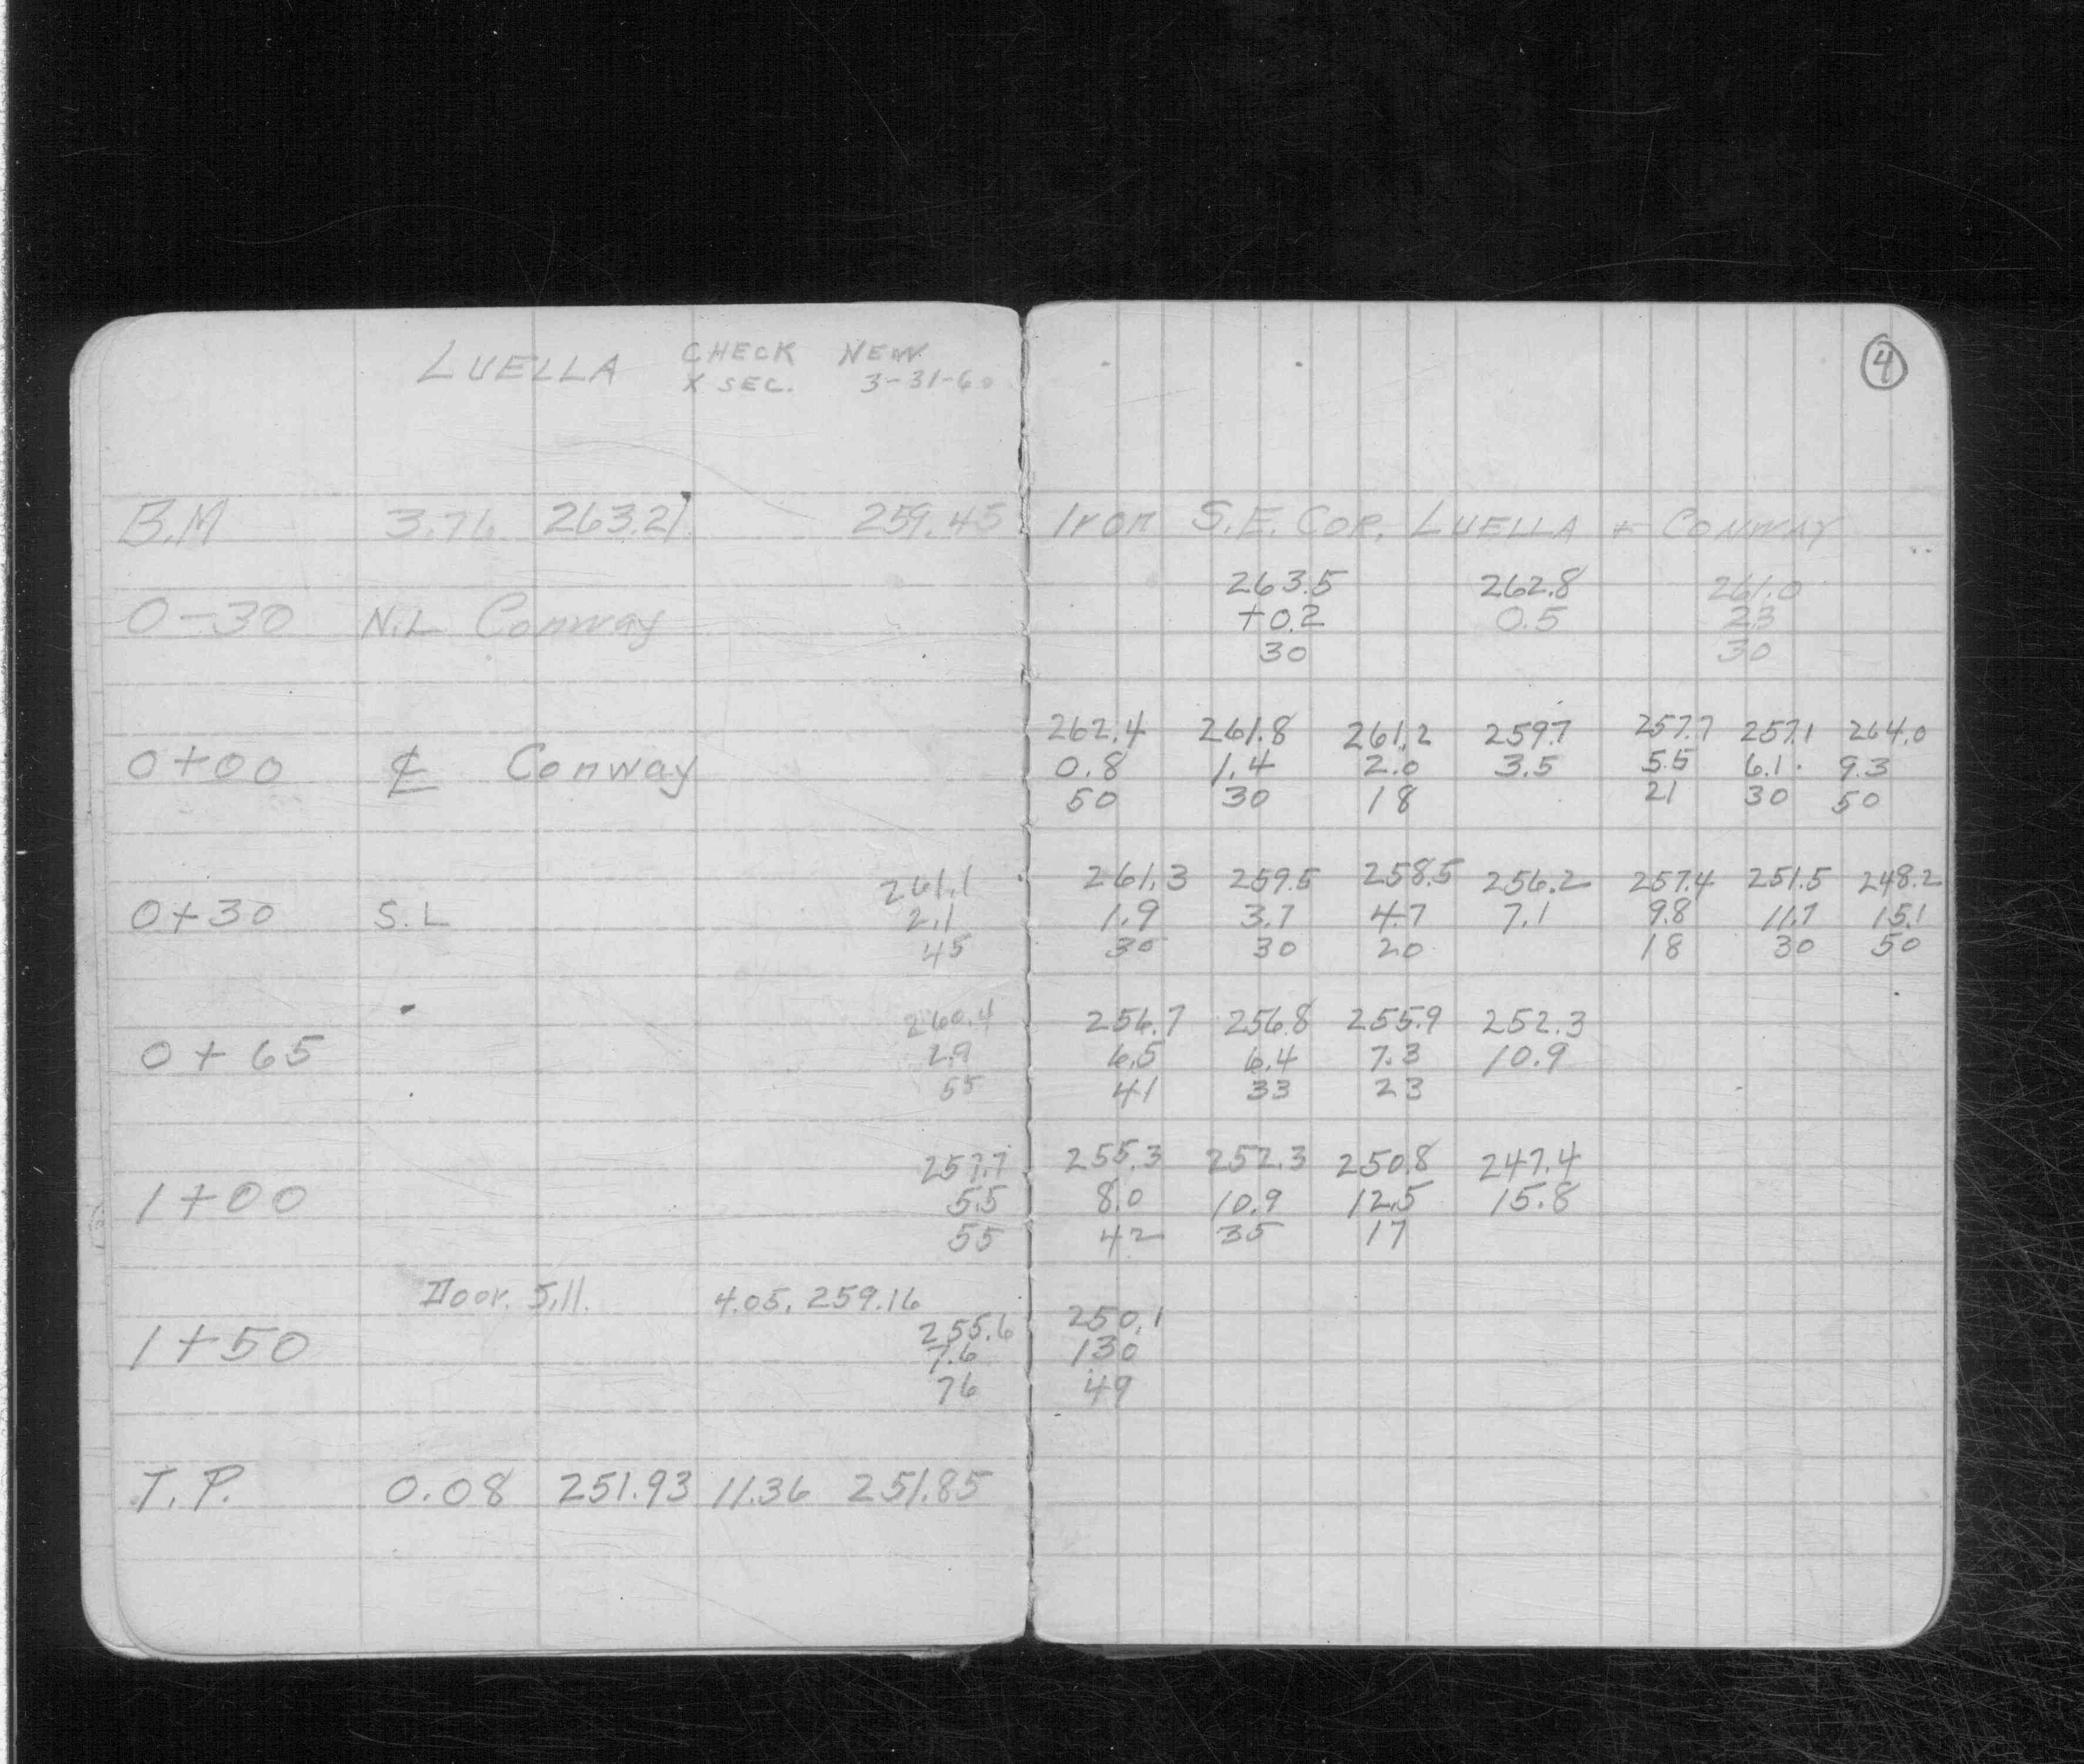 LUELLA CHECK NEW
X SEC. 3-31-60
4
B.M 3.76 263.21 259.45 Iron S.E. COR. LUELLA + CONWAY
263.5 262.8 261.0
0-30 N.L Conway +0.2 0.5 2.3
30 30
262.4 261.8 261.2 259.7 257.7 257.1 264.0
0+00 ℄ Conway 0.8 1.4 2.0 3.5 5.5 6.1 9.3
50 30 18 21 30 50
261.1 261.3 259.5 258.5 256.2 257.4 251.5 248.2
0+30 S.L 2.1 1.9 3.7 4.7 7.1 9.8 11.7 15.1
45 30 30 20 18 30 50
260.4 256.7 256.8 255.9 252.3
0+65 2.9 6.5 6.4 7.3 10.9
55 41 33 23
257.7 255.3 252.3 250.8 247.4
1+00 5.5 8.0 10.9 12.5 15.8
55 42 35 17
Door. 5.11. 4.05. 259.16
255.6 250.1
1+50 7.6 130
76 49
T.P. 0.08 251.93 11.36 251.85